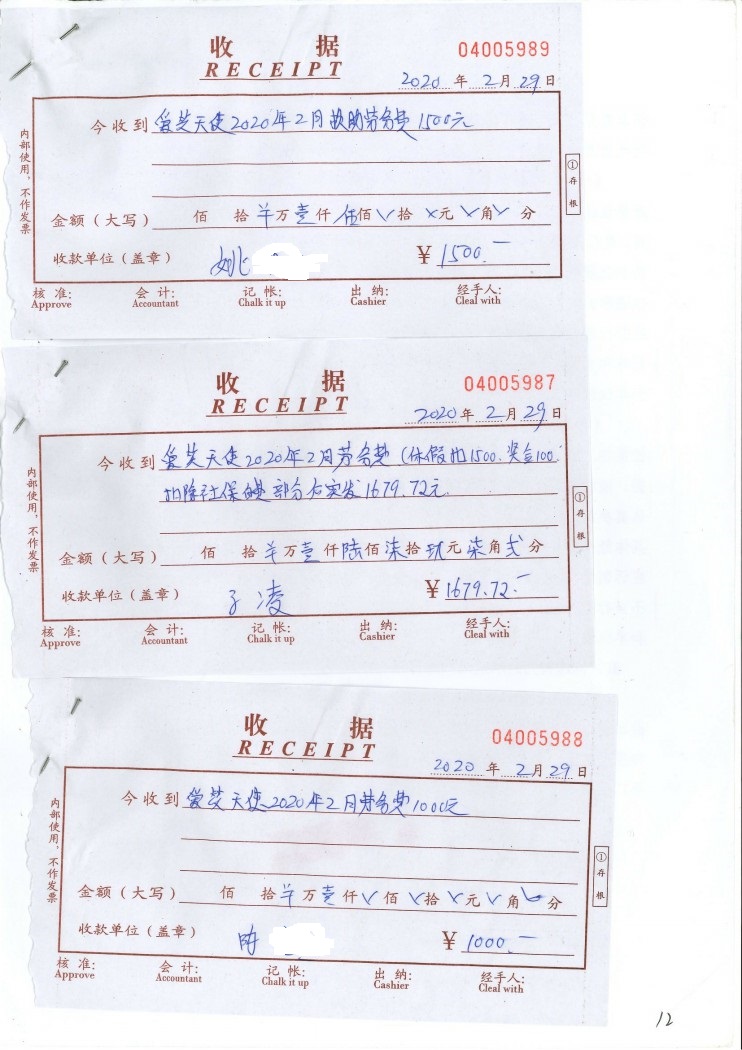 收 据
RECEIPT
04005989
2020 年 2 月 29 日
今收到 爱芨天使2020年2月扶助劳务费1500元
金额（大写） 佰 拾 羊 万 壹 仟 伍 佰 拾 元 角 分
收款单位（盖章） 姚 ¥ 1500.—
核 准: 会 计: 记 帐: 出 纳: 经手人:
Approve Accountant Chalk it up Cashier Cleal with
内部使用，不作发票
①存根
收 据
RECEIPT
04005987
2020 年 2 月 29 日
今收到 爱芨天使2020年2月劳务费（休假扣1500.奖金100.
扣除社保 部分后实发1679.72元
金额（大写） 佰 拾 羊 万 壹 仟 陆 佰 柒 拾 玖 元 柒 角 弍 分
收款单位（盖章） 子凌 ¥ 1679.72.—
核 准: 会 计: 记 帐: 出 纳: 经手人:
Approve Accountant Chalk it up Cashier Cleal with
内部使用，不作发票
①存根
收 据
RECEIPT
04005988
2020 年 2 月 29 日
今收到 爱芨天使2020年2月劳务费1000元
金额（大写） 佰 拾 羊 万 壹 仟 佰 拾 元 角 分
收款单位（盖章） ¥ 1000.—
核 准: 会 计: 记 帐: 出 纳: 经手人:
Approve Accountant Chalk it up Cashier Cleal with
内部使用，不作发票
①存根
12